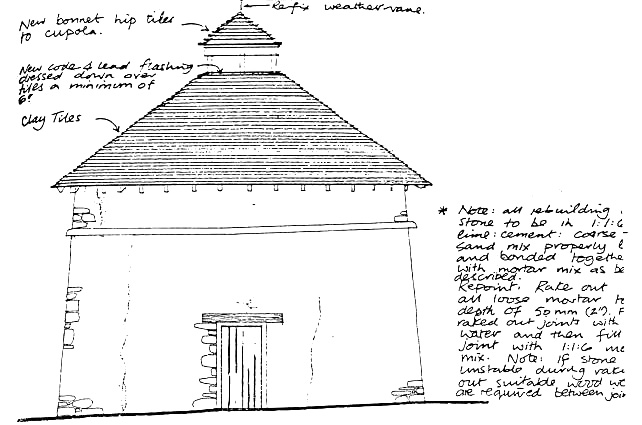 Refix weathervane.
New bonnet hip tiles
to cupola.
New code 4 lead flashing
dressed down over
tiles a minimum of
6"
Clay Tiles
* Note: all rebuilding
stone to be in 1:1:6
lime: cement: coarse
sand mix properly
and bonded togethe
with mortar mix as be
described.
Repoint. Rake out
all loose mortar to
depth of 50mm (2").
raked out joints with
water and then fill
joint with 1:1:6 mo
mix. Note: If stone
unstable during rak
out suitable wood we
are required between join